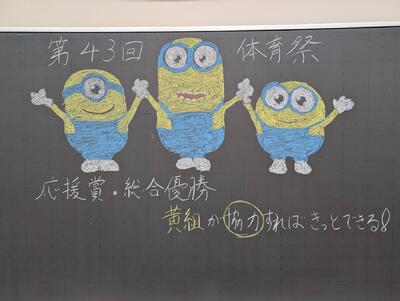 第43回 体育祭
応援賞・総合優勝
黄組が協力すればきっとできる!